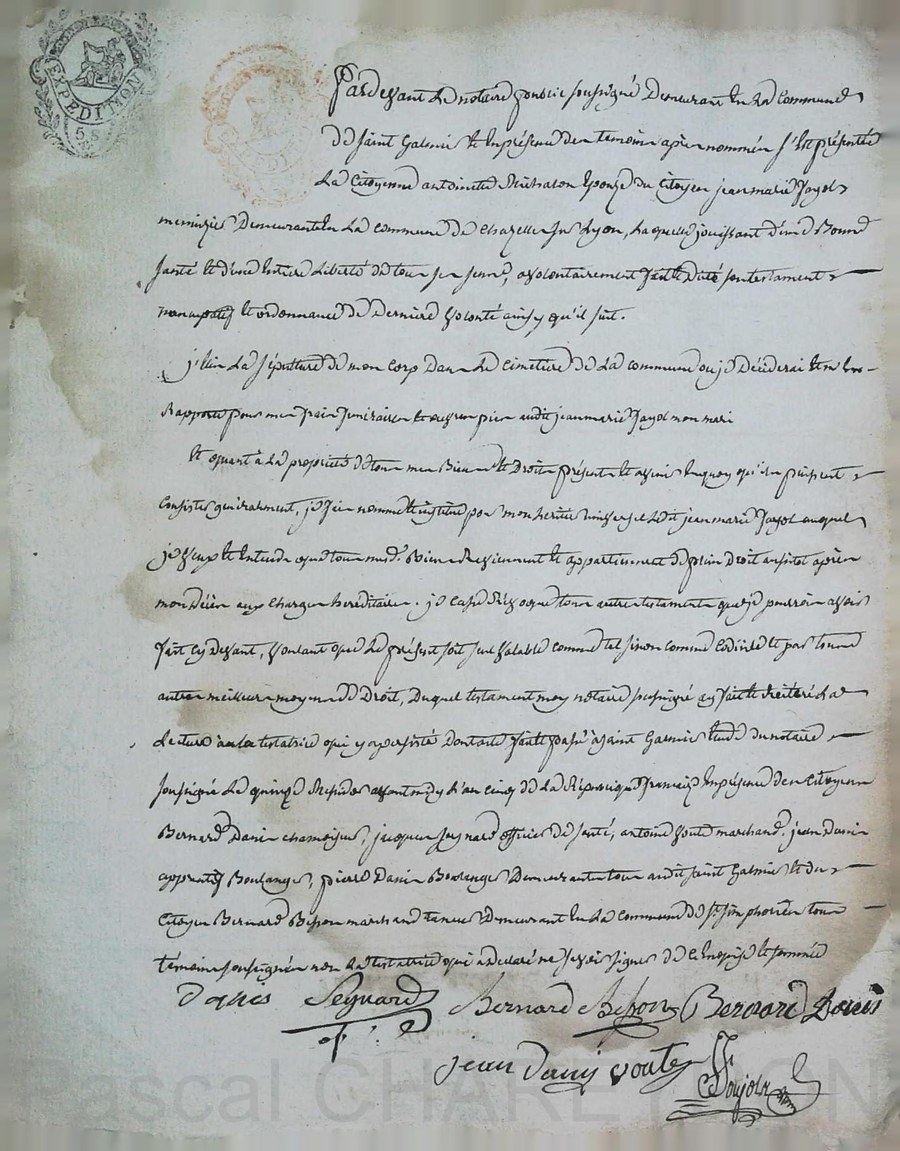 EXPEDI MON
5 S
Pardevant Le notaire public soussigné Demeurant En La Commune
de Saint Galmier Et En présence des temoins après nommés s'Est présentée
La Citoyenne antoinette Michalon Epouze du Citoyen jeanmarie Fayol
menuizier Demeurante En La commune de Chazelle sur Lyon, Laquelle jouissant d'une Bonne
santé Et d'une Entiere Liberté de tous ses sens, a volontairement fait Et Dicté son testament
noncupatif Et ordonnance de Derniere volonté ainsy qu'il suit.
j'Elis La sépulture de mon corp Dans Le Cimetière de La commune ou je Déciderai Et m'En
Rapporte pour mes frais funeraires Et audit jeanmarie Fayol mon mari
Et quant à La propriété de tous mes Biens Et Droits présents Et avenir Enquoy qu'ils puissent
consister généralement, je nomme Et institue pour mon heritier universel Ledit jeanmarie Fayol auquel
je veux Et Entends que tous mesd. Biens Reviennent Et appartiennent de plein Droit aussitot après
mon Décès aux Charges hereditaires. je Casse Révoque tous autres testaments que je pourrois avoir
fait cy devant, voulant que Le présent soit seul valable comme tel sinon comme Codicile Et par toute
autres meilleurs moyens de Droit, Duquel testament moy notaire soussigné ay fait Et Reiteré La
Lecture à la testatrice qui y a persisté Dont acte fait Et passé à saint Galmier Etude du notaire
soussigné Le quinze Messidor avant midy L'an cinq de La République française En présence des Citoyens
Bernard Danis chamoiseur, jacques Seynard officier de santé, antoine Voute marchand, jean Danis
apprentif Boulanger, pierre Danis Boulanger Demeurants tous audit saint Galmier Et du
Citoyen Bernard Besson marchand taneur Demeurant En La commune de St Simphorien tous
témoins soussignés non La testatrice qui a declaré ne savoir signer de ce Enquise Et sommée
Danis Seynard Bernard Besson Bernard Danis
jean Danis voute
Pujoln
Pascal CHAREYRON